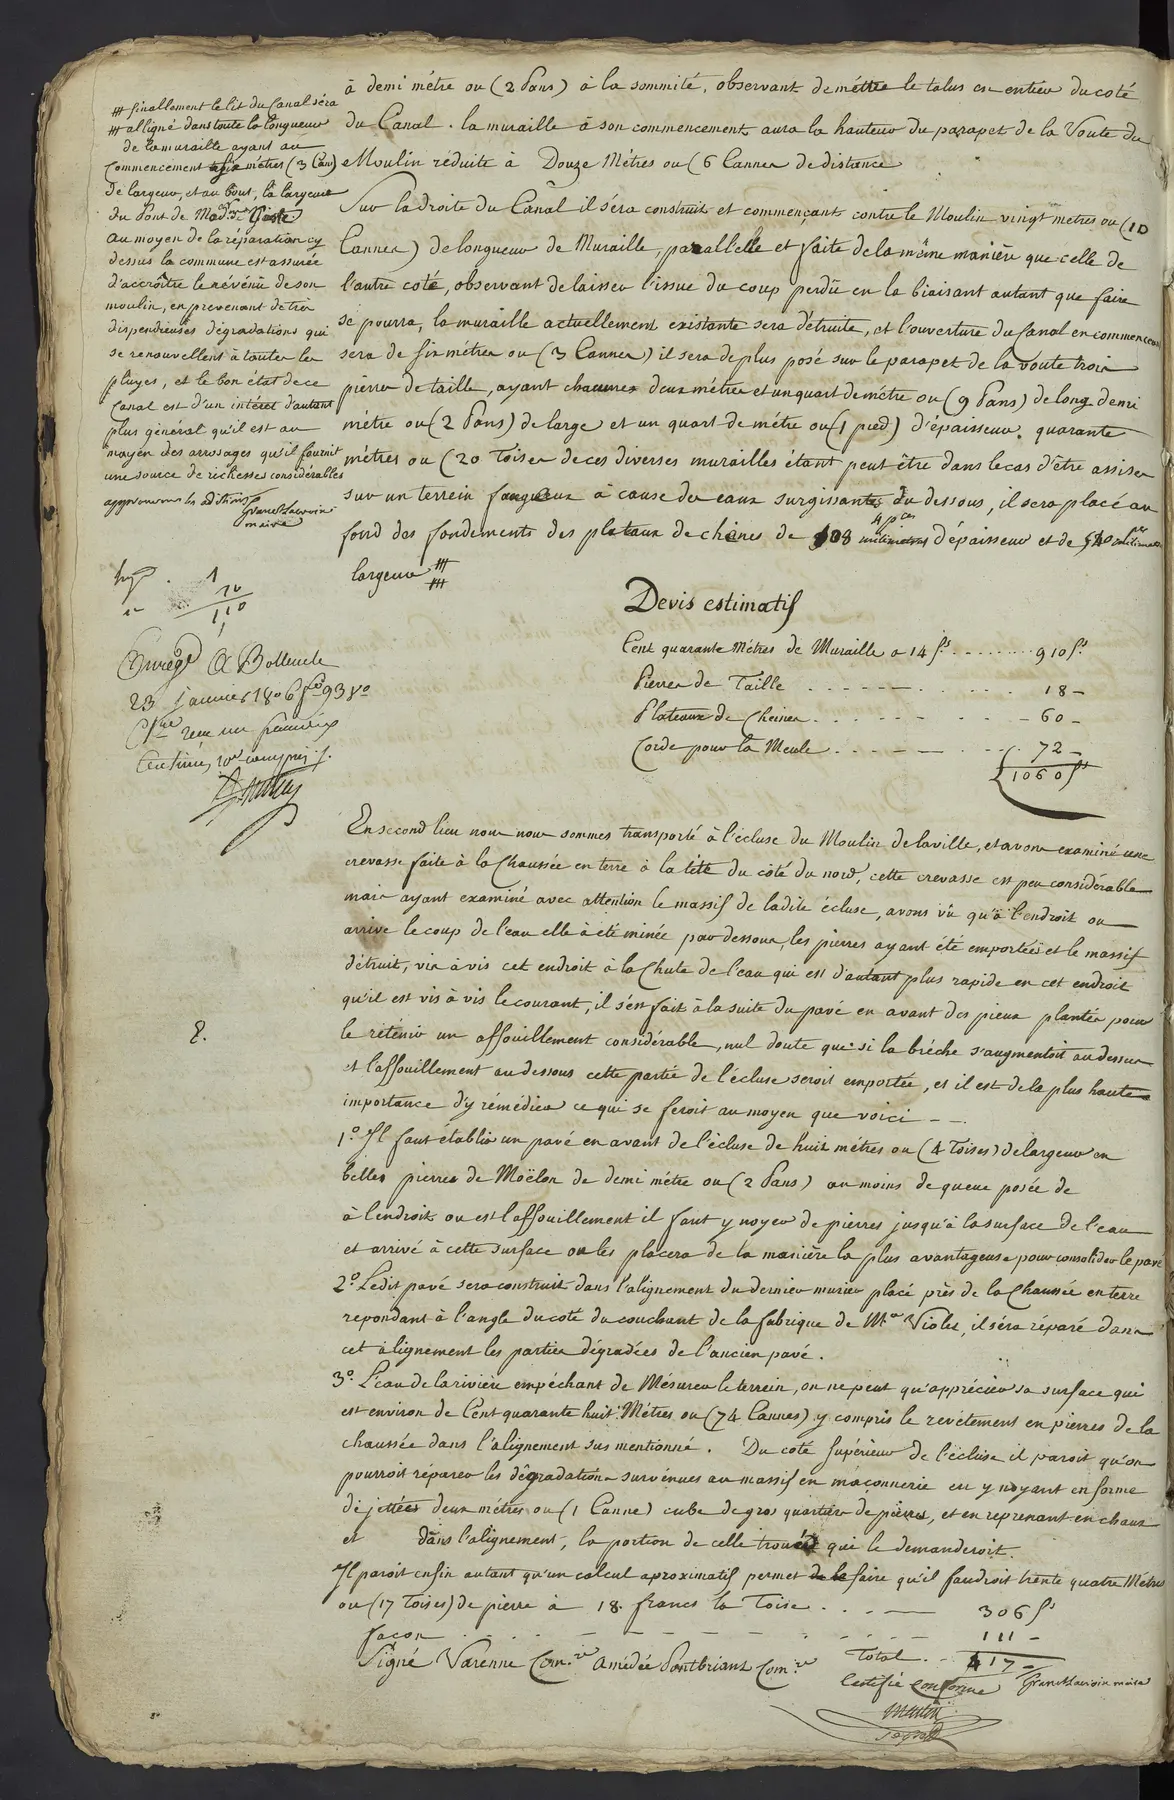 à demi métre ou (2 Pans) à la sommité, observant de méttre le talus en entier du coté
du Canal. la muraille à son commencement aura la hauteur du parapet de la Voute du
Moulin réduite à Douze Métres ou (6 Cannes de distance
Sur la droite du Canal il séra construit et commençant contre le Moulin vingt metres ou (10
Cannes) de longueur de Muraille, parallelle et faite de la même manière que celle de
l'autre coté, observant de laisser l'issue du coup perdû en la biaisant autant que faire
se pourra, la muraille actuellement existante sera détruite, et l'ouverture du Canal en commencent
sera de six métres ou (3 Cannes) il sera de plus posé sur le parapet de la voute trois
pierres de taille, ayant chacunes deux métres et un quart de métre ou (9 Pans) de long demi
métre ou (2 Pans) de large et un quart de métre ou (1 pied) d'épaisseur. quarante
métres ou (20 Toises de ces diverses murailles étant peut être dans le cas d'être assises
sur un terrein fangeux à cause des eaux surgissantes du dessous, il sera placé au
fond des fondements des plataux de chênes de 108 millimetres d'épaisseur et de
largeur
⧻ finallement le lit du Canal séra
⧻ alligné dans toute la longueur
de la muraille ayant au
commencement six métres (3 Can)
de largeur, et au bout, la largeur
du Pont de Mad.
au moyen de la réparation cy
dessus la commune est assurée
d'accroître le révénû de son
moulin, en prevenant de très
dispendieuses dégradations qui
se renouvellent à toutes les
pluyes, et le bon état de ce
Canal est d'un intéret d'autant
plus général qu'il est au
moyen des arrosages qu'il fournit
une source de richesses considérables
approuvons les additions
maire
1
10
110
Enregé à Bollene le
23 janvier 1806 fo 93 Vo
Cse reçu un franc dix
Centimes, 10e compris
Devis estimatif
Cent quarante Métres de Muraille a 14 fs. ........ 910 fs.
Pierres de Taille . . . . . . . . 18 -
Plataux de Chênes . . . . . . . - 60 -
Corde pour la Meule . . . . . . . 72 -
1060 fs
En second lieu nous nous sommes transporté à l'écluse du Moulin de la ville, et avons examiné une
crevasse faite à la Chaussée en terre à la tête du côté du nord, cette crevasse est peu considérable
mais ayant examiné avec attention le massif de ladite écluse, avons vû qu'à l'endroit ou
arrive le coup de l'eau elle à été minée par dessous, les pierres ayant été emportées et le massif
détruit, vis à vis cet endroit à la Chute de l'eau qui est d'autant plus rapide en cet endroit
qu'il est vis à vis le courant, il s'en fait à la suite du pavé en avant des pieux plantés pour
le rétenir un affouillement considérable, nul doute que si la bréche s'augmentoit au dessus
et l'affouillement au dessous cette partie de l'écluse seroit emportée, et il est de la plus haute
importance d'y rémédier ce qui se feroit au moyen que voici - -
1.° Il faut établir un pavé en avant de l'écluse de huit métres ou (4 Toises) de largeur en
belles pierres de Moëlon de demi métre ou (2 Pans) au moins de queue posée de
à l'endroit ou est l'affouillement il faut y noyer de pierres jusqu'à la surface de l'eau
et arrivé à cette surface on les placera de la manière la plus avantageuse pour consolider le pavé
2.° Ledit pavé sera construit dans l'alignement du dernier murier placé près de la Chaussée en terre
repondant à l'angle du coté du couchant de la fabrique de Mr Violes, il séra réparé dans
cet alignement les parties dégradées de l'ancien pavé.
3.° L'eau de la rivière empéchant de Mésurer le terrein, on ne peut qu'apprécier sa surface qui
est environ de Cent quarante huit Métres ou (74 Cannes) y compris le revétement en pierres de la
chaussée dans l'alignement sus mentionné. Du coté supérieur de l'écluse il paroit qu'on
pourroit réparer les dégradations survénues au massif en maçonnerie en y noyant en forme
de jettées deux métres ou (1 Canne) cube de gros quartiers de pierres, et en reprenant en chaux
et dans l'alignement, la portion de celle trouée qui le demanderoit.
Il paroit enfin autant qu'un calcul aproximatif permet de le faire qu'il faudroit trente quatre Métres
ou (17 Toises) de pierre à 18. francs la Toise . . . — 306 fs
façon . . . . . . . . . . 111 -
Signé Varenne Com.re Amédée Pontbriant Com.re Total . . 417 -
Certifié conforme
maire